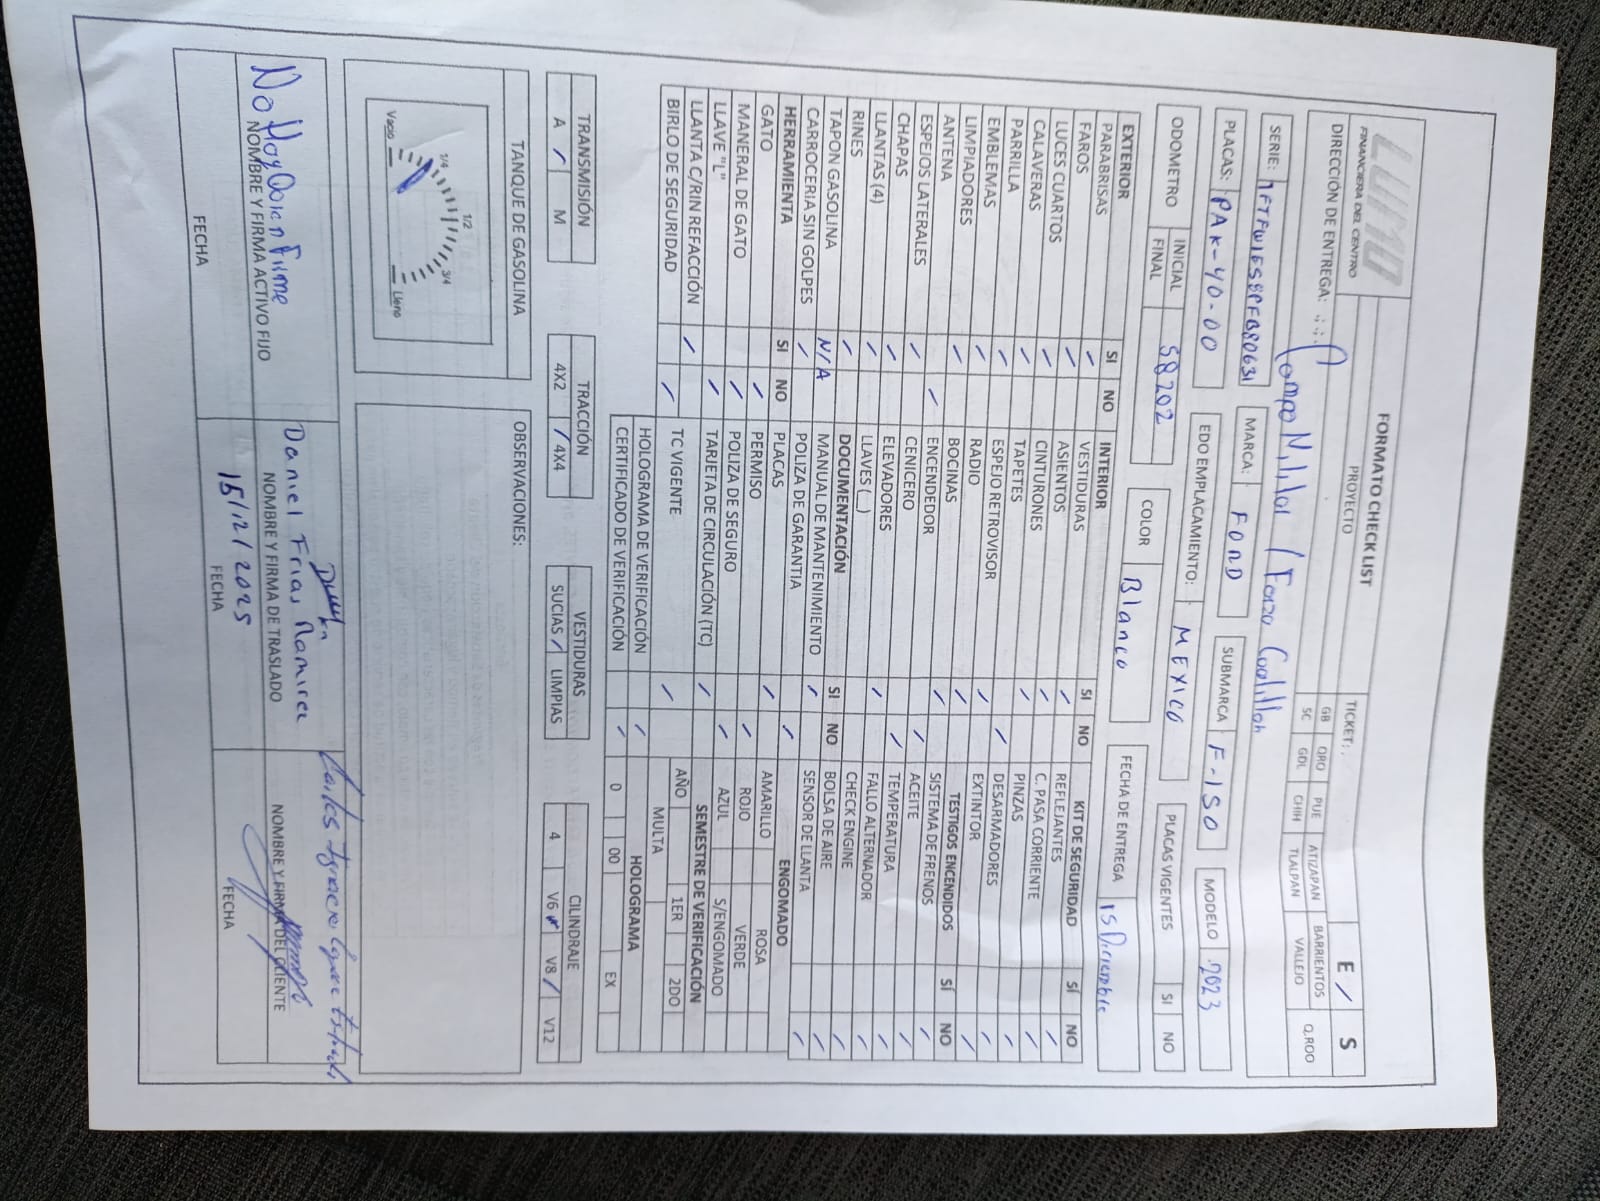 LUMO
FINANCIERA DEL CENTRO
FORMATO CHECK LIST
E / S
DIRECCIÓN DE ENTREGA:
PROYECTO
TICKET:
GB QRO PUE ATIZAPAN BARRIENTOS Q.ROO
SC GDL CHIH TLALPAN VALLEJO
Campo Militar
SERIE: 1FTFW1E58PFB80631 MARCA: FORD SUBMARCA F-150 MODELO 2023
PLACAS: PAK-40-00 EDO EMPLACAMIENTO: MEXICO PLACAS VIGENTES SI NO
ODOMETRO INICIAL 58202 COLOR Blanco FECHA DE ENTREGA 15 Diciembre
FINAL
EXTERIOR SI NO INTERIOR SI NO KIT DE SEGURIDAD SÍ NO
PARABRISAS / VESTIDURAS / REFLEJANTES /
FAROS / ASIENTOS / C. PASA CORRIENTE /
LUCES CUARTOS / CINTURONES / PINZAS /
CALAVERAS / TAPETES / DESARMADORES /
PARRILLA / ESPEJO RETROVISOR / EXTINTOR /
EMBLEMAS / RADIO / TESTIGOS ENCENDIDOS SÍ NO
LIMPIADORES / BOCINAS / SISTEMA DE FRENOS /
ANTENA / ENCENDEDOR / ACEITE /
ESPEJOS LATERALES / CENICERO / TEMPERATURA /
CHAPAS / ELEVADORES / FALLO ALTERNADOR /
LLANTAS (4) / LLAVES (__) / CHECK ENGINE /
RINES / DOCUMENTACIÓN SI NO BOLSA DE AIRE /
TAPON GASOLINA N/A MANUAL DE MANTENIMIENTO / SENSOR DE LLANTA /
CARROCERIA SIN GOLPES / POLIZA DE GARANTIA / ENGOMADO
HERRAMIENTA SI NO PLACAS / AMARILLO ROSA
GATO / PERMISO / ROJO VERDE
MANERAL DE GATO / POLIZA DE SEGURO / AZUL S/ENGOMADO
LLAVE "L" / TARJETA DE CIRCULACIÓN (TC) / SEMESTRE DE VERIFICACIÓN
LLANTA C/RIN REFACCIÓN / TC VIGENTE / AÑO 1ER 2DO
BIRLO DE SEGURIDAD / HOLOGRAMA DE VERIFICACIÓN / MULTA
CERTIFICADO DE VERIFICACIÓN / HOLOGRAMA
0 00 EX
TRANSMISIÓN TRACCIÓN VESTIDURAS CILINDRAJE
A / M 4X2 / 4X4 SUCIAS / LIMPIAS 4 V6 V8 / V12
TANQUE DE GASOLINA OBSERVACIONES:
Vacio 1/4 1/2 3/4 Lleno
No Hay Quien Firme Daniel Frias Ramirez
NOMBRE Y FIRMA ACTIVO FIJO NOMBRE Y FIRMA DE TRASLADO NOMBRE Y FIRMA DEL CLIENTE
15/12/2025
FECHA FECHA FECHA